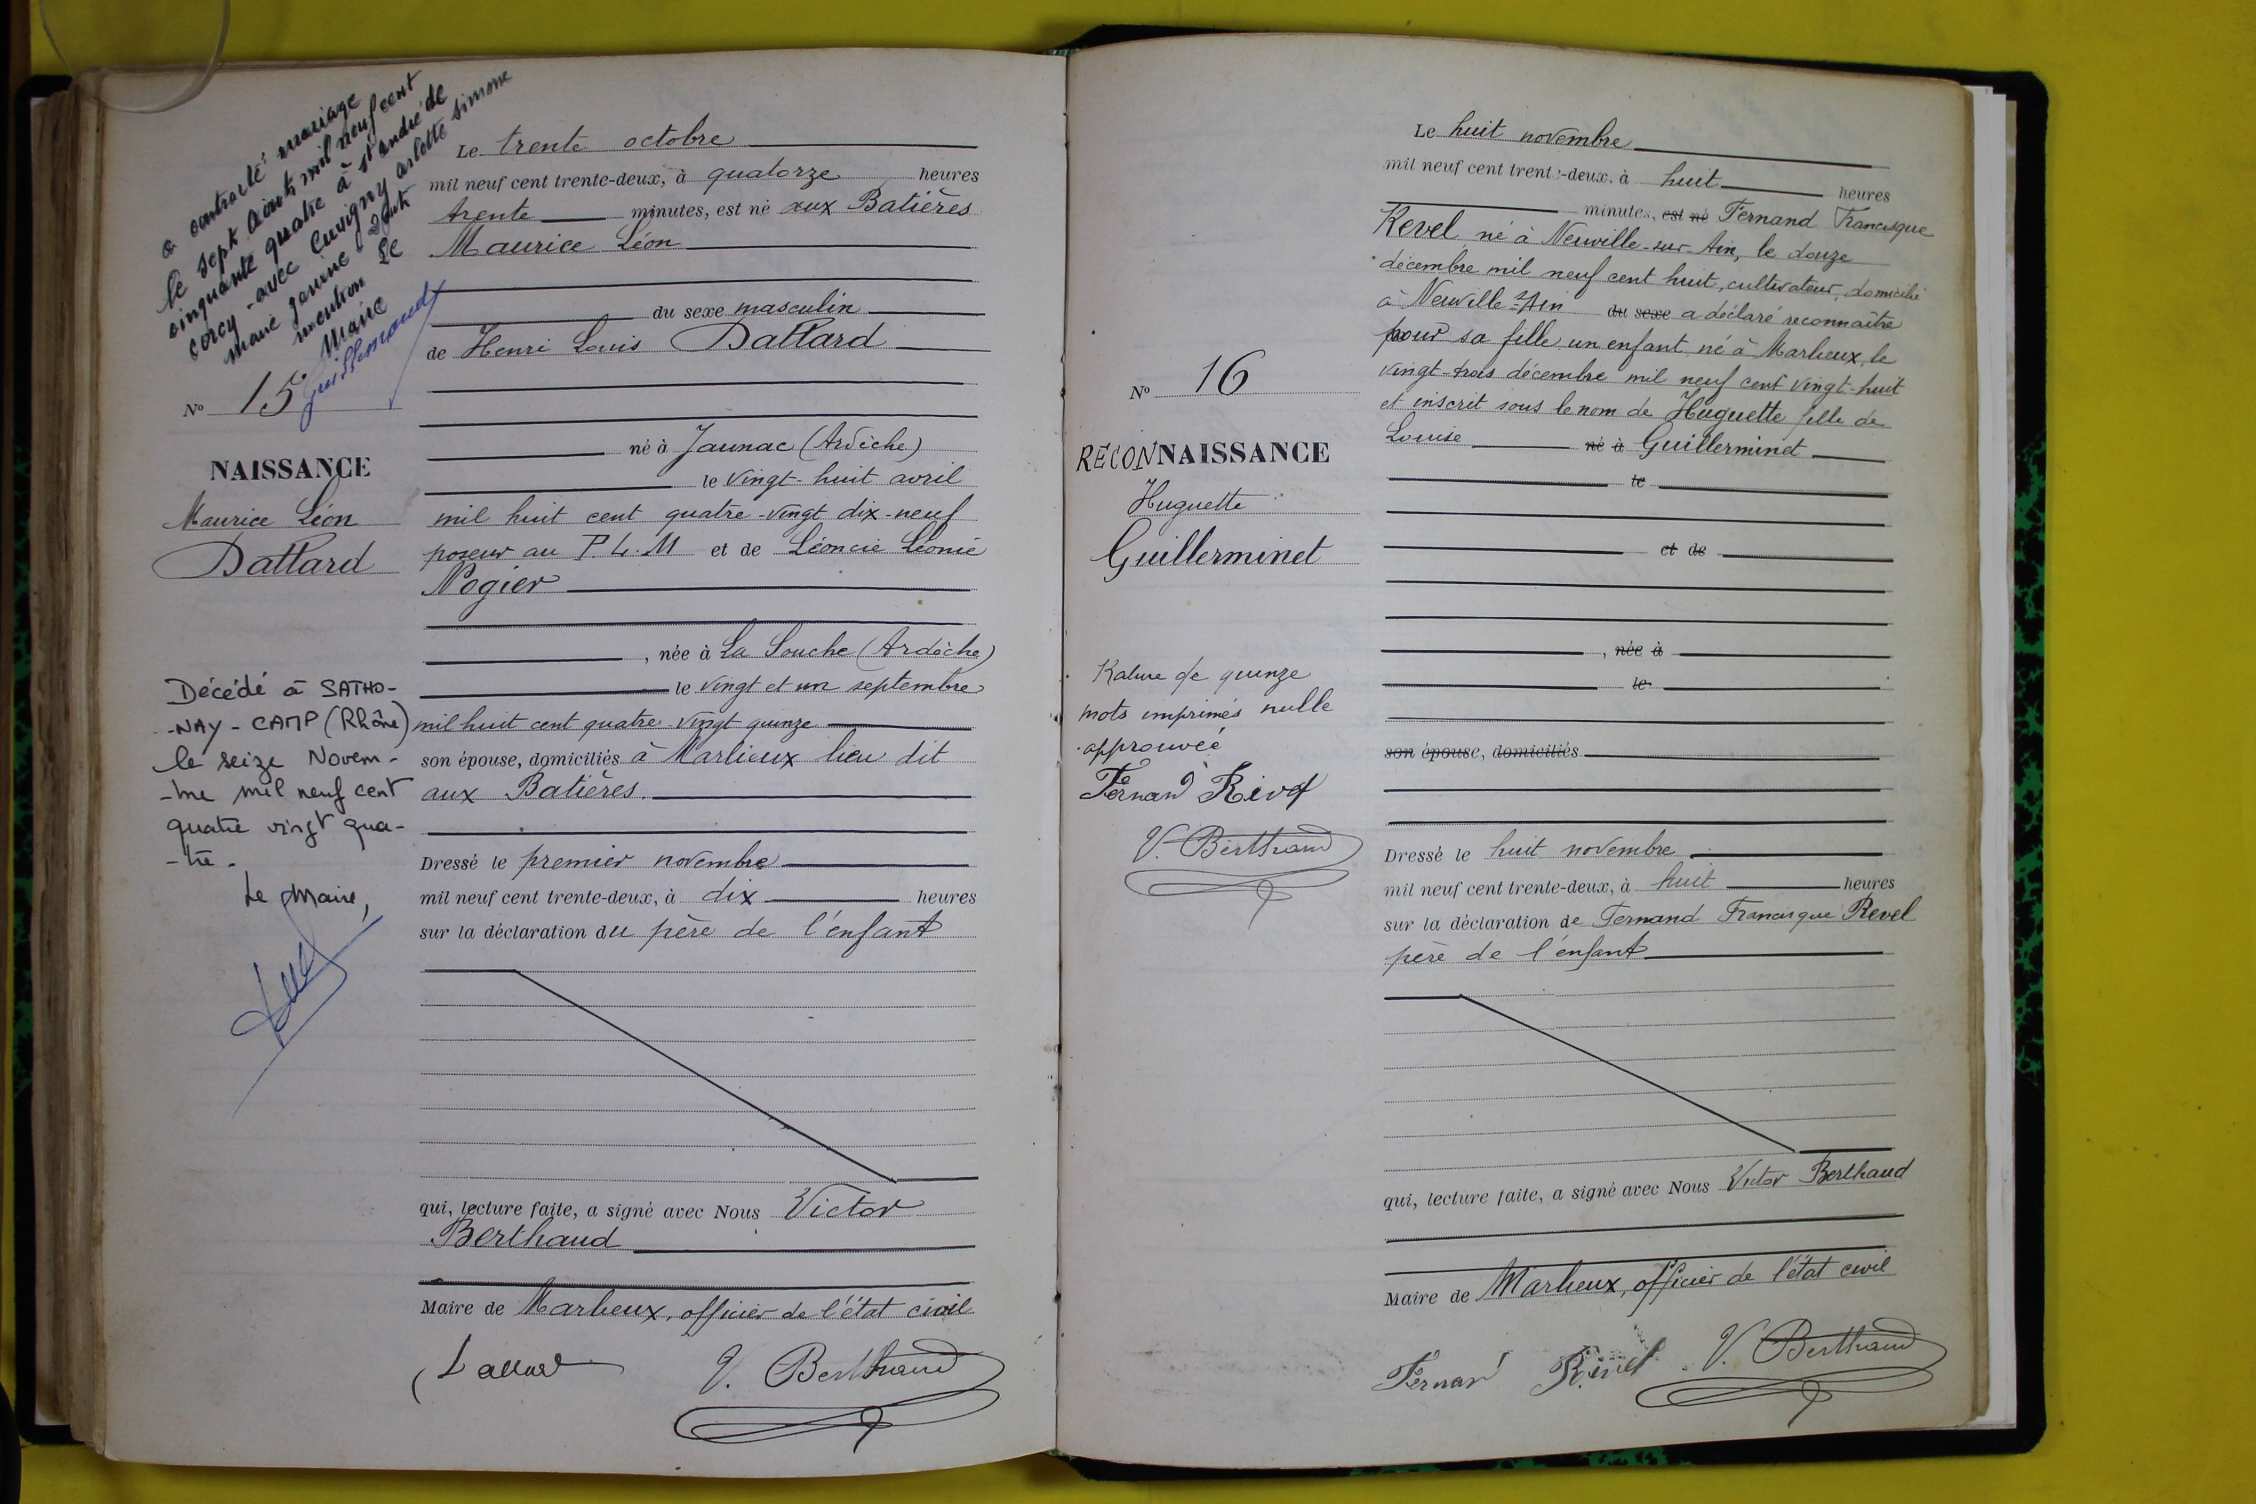 a contracté mariage
le sept Août mil neuf cent
cinquante quatre à st andré de
corcy - avec Cuvigny arlette simone
marie jeanne
mention Le
Maire
Le trente octobre
mil neuf cent trente-deux, à quatorze heures
trente minutes, est né aux Batières
Maurice Léon
du sexe masculin
de Henri Louis Dallard
Nº 15
né à Jaunac (Ardèche)
NAISSANCE
le vingt-huit avril
Maurice Léon
Dallard
mil huit cent quatre-vingt dix-neuf
poseur au P.L.M et de Léoncie Léonie
Nogier
, née à La Souche (Ardèche)
le vingt et un septembre
mil huit cent quatre-vingt quinze
son épouse, domiciliés à Marlieux lieu dit
aux Batières.
Décédé à SATHO-
-NAY-CAMP (Rhône)
le seize Novem-
-bre mil neuf cent
quatre vingt qua-
-tre.
Le Maire,
Dressé le premier novembre
mil neuf cent trente-deux, à dix heures
sur la déclaration du père de l'enfant
qui, lecture faite, a signé avec Nous Victor
Berthaud
Maire de Marlieux, officier de l'état civil
Dallard V. Berthaud
Le huit novembre
mil neuf cent trente-deux, à huit heures
minutes, est né Fernand Francisque
Revel né à Neuville-sur-Ain, le douze
décembre mil neuf cent huit, cultivateur, domicilié
à Neuville-s/-Ain du sexe a déclaré reconnaître
pour sa fille un enfant né à Marlieux, le
vingt-trois décembre mil neuf cent vingt-huit
et inscrit sous le nom de Huguette fille de
Louise né à Guillerminet
le
et de
, née à
le
son épouse, domiciliés
Nº 16
RECONNAISSANCE
Huguette
Guillerminet
Rature de quinze
mots imprimés nulle
approuvée
Fernand Revel
V. Berthaud
Dressé le huit novembre
mil neuf cent trente-deux, à huit heures
sur la déclaration de Fernand Francisque Revel
père de l'enfant
qui, lecture faite, a signé avec Nous Victor Berthaud
Maire de Marlieux, officier de l'état civil
Fernand Revel V. Berthaud